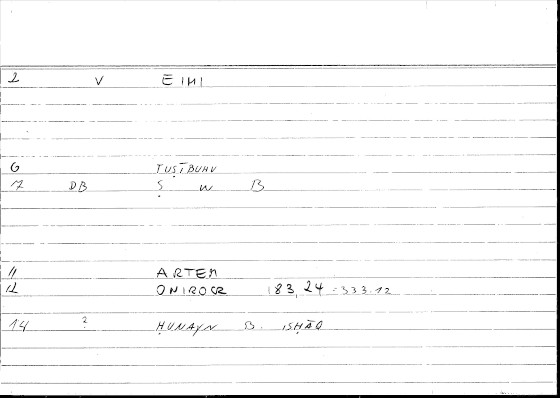 2 V EIMI
6 TUṢĪBUHU
7 DB Ṣ W B
11 ARTEM
12 ONIROCR 183,24 = 333.12
14 ? ḤUNAYN B. ISḤĀQ